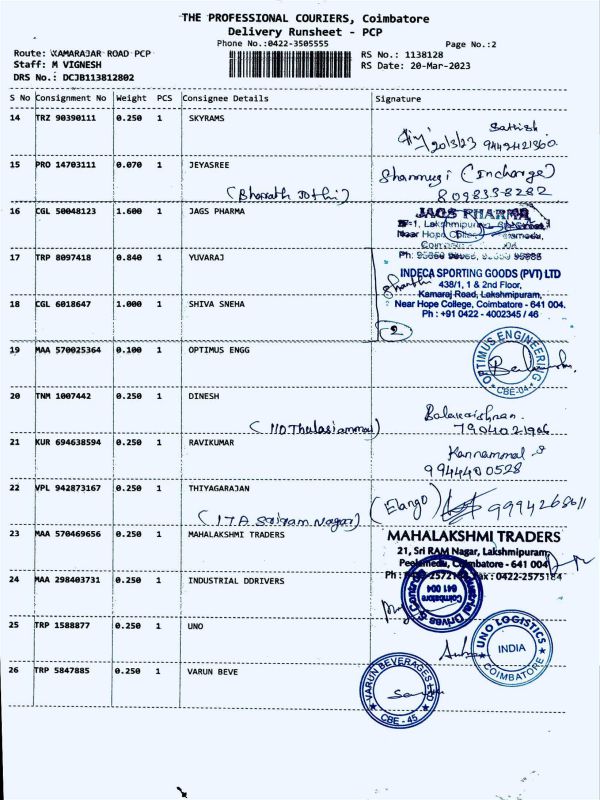 THE PROFESSIONAL COURIERS, Coimbatore
Delivery Runsheet - PCP
Phone No.:0422-3505555
Page No.:2
Route: KAMARAJAR ROAD PCP
RS No.: 1138128
Staff: M VIGNESH
RS Date: 20-Mar-2023
DRS No.: DCJB113812802
S No Consignment No Weight PCS Consignee Details Signature
14 TRZ 90390111 0.250 1 SKYRAMS
Sathish
20/3/23
15 PRO 14703111 0.070 1 JEYASREE
Shanmugi (Incharge)
(Bharath Jothi) 8098338282
16 CGL 50048123 1.600 1 JAGS PHARMA
JAGS PHARMA
Near Hope
17 TRP 8097418 0.840 1 YUVARAJ
INDECA SPORTING GOODS (PVT) LTD
438/1, 1 & 2nd Floor,
Kamaraj Road, Lakshmipuram,
Near Hope College, Coimbatore - 641 004.
Ph : +91 0422 - 4002345 / 46
18 CGL 6018647 1.000 1 SHIVA SNEHA
2
19 MAA 570025364 0.100 1 OPTIMUS ENGG
OPTIMUS ENGINEERING
CBE-04
20 TNM 1007442 0.250 1 DINESH
Balakrishnan
(110 Thulasiammal) 7904021906
21 KUR 694638594 0.250 1 RAVIKUMAR
Kannammal
9944400528
22 VPL 942873167 0.250 1 THIYAGARAJAN
(Elango) 9994268611
(17A Sriram Nagar)
23 MAA 570469656 0.250 1 MAHALAKSHMI TRADERS
MAHALAKSHMI TRADERS
21, Sri RAM Nagar, Lakshmipuram,
Peelamedu, Coimbatore - 641 004
Fax : 0422-2575184
24 MAA 298403731 0.250 1 INDUSTRIAL DDRIVES
Industrial Drives & Controls
Coimbatore
641 004
25 TRP 1588877 0.250 1 UNO
UNO LOGISTICS
INDIA
COIMBATORE
26 TRP 5847885 0.250 1 VARUN BEVE
VARUN BEVERAGES LTD
CBE - 45